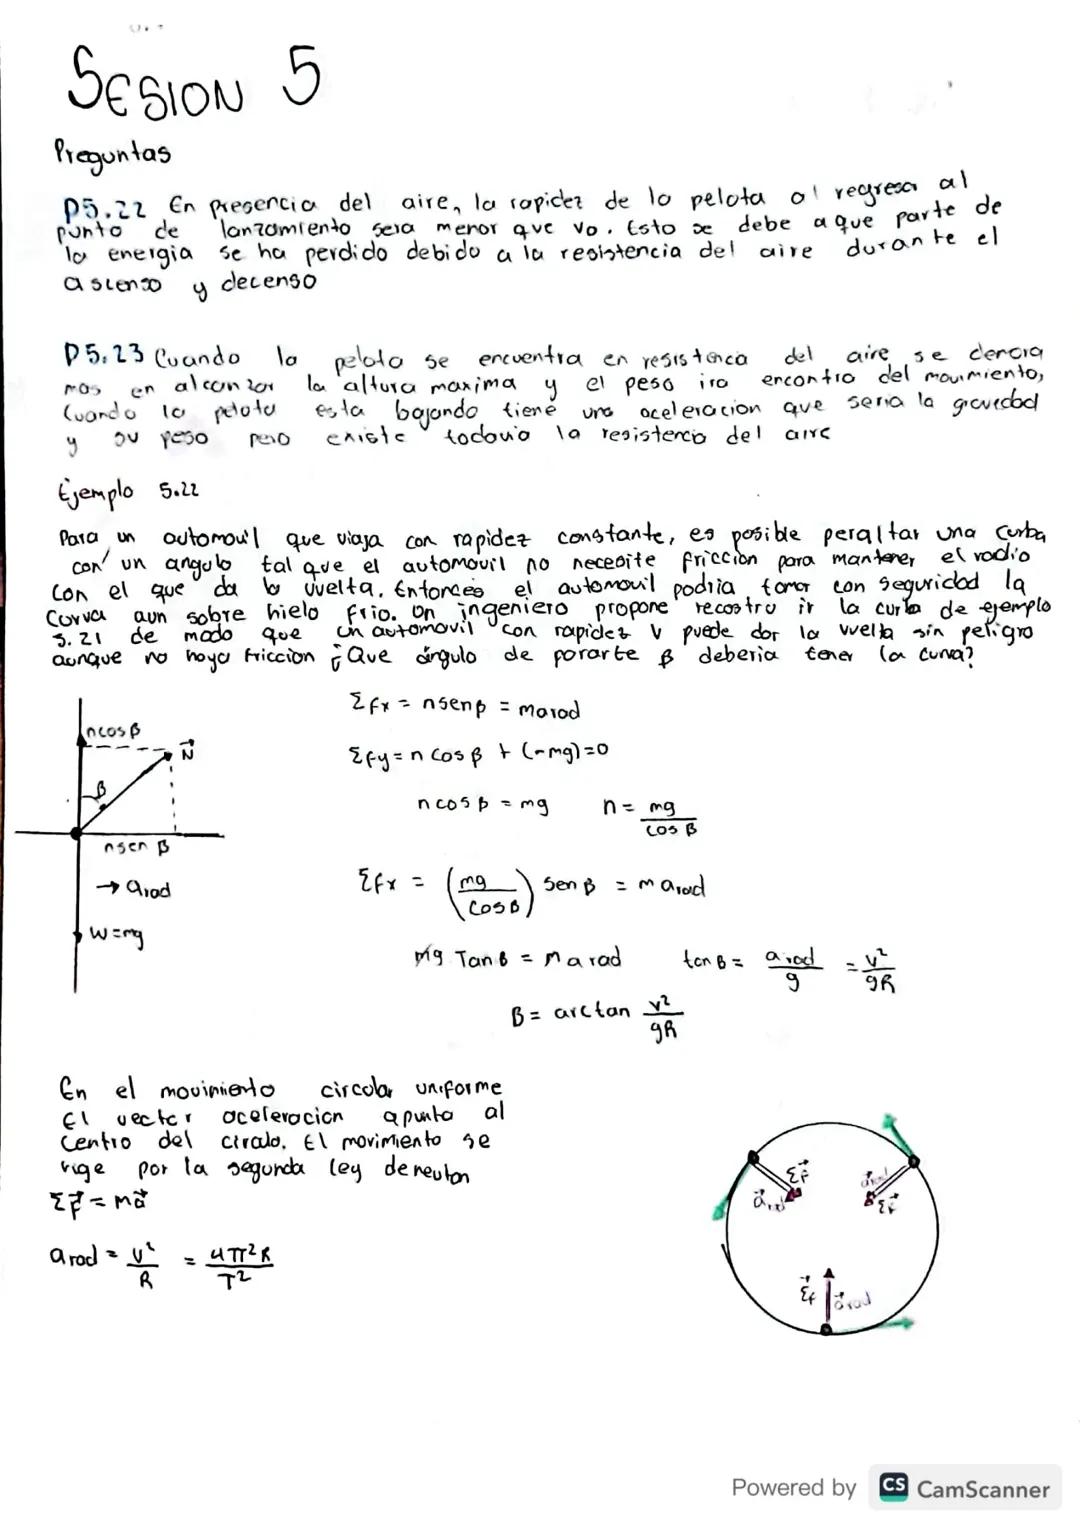 SESION 5
Preguntas
P5.22 En presencia del aire, la rapidez de la pelota al regresar al
punto de lanzamiento sera menor que vo. Esto se debe a que parte de
la energia se ha perdido debido a la resistencia del aire durante el
ascenso y decenso
P5.23 Cuando la pelota se encuentra en resistencia del aire se
mas en alcanzar la altura maxima y el peso ira encontra del movimiento,
Cuando la pelota esta bajando tiene una aceleracion que seria la gravedad
y su peso pero existe todavia la resistencia del aire
Ejemplo 5.22
Para un automovil que viaja con rapidez constante, es posible peraltar una curba
con un angulo tal que el automovil no necesite friccion para mantener el radio
con el que da la vuelta. Entonces el automovil podria tomar con seguridad la
Curva aun sobre hielo frio. Un ingeniero propone recostru ir la curba de ejemplo
5.21 de modo que un automovil con rapidez v puede dar la vuelta sin peligro
aunque no haya friccion ¿Que ángulo de β deberia tener la curva?
ncosβ
N⃗
β
nsen β
→ arad
W=mg
Σfx = nsenβ = marad
Σfy = n cosβ + (-mg)=0
n cosβ = mg n = mg/cos β
Σfx = (mg/cosβ) senβ = m arad
mg Tanβ = marad tanβ = arad/g = v²/gR
β = arctan v²/gR
En el movimiento circular uniforme
El vector aceleracion apunta al
Centro del circulo. El movimiento se
rige por la segunda ley de neuton
ΣF⃗ = ma⃗
arad = v²/R = 4π²R/T²
ΣF⃗
a⃗rad
a⃗rad
ΣF⃗
ΣF⃗
a⃗rad
Powered by CS CamScanner